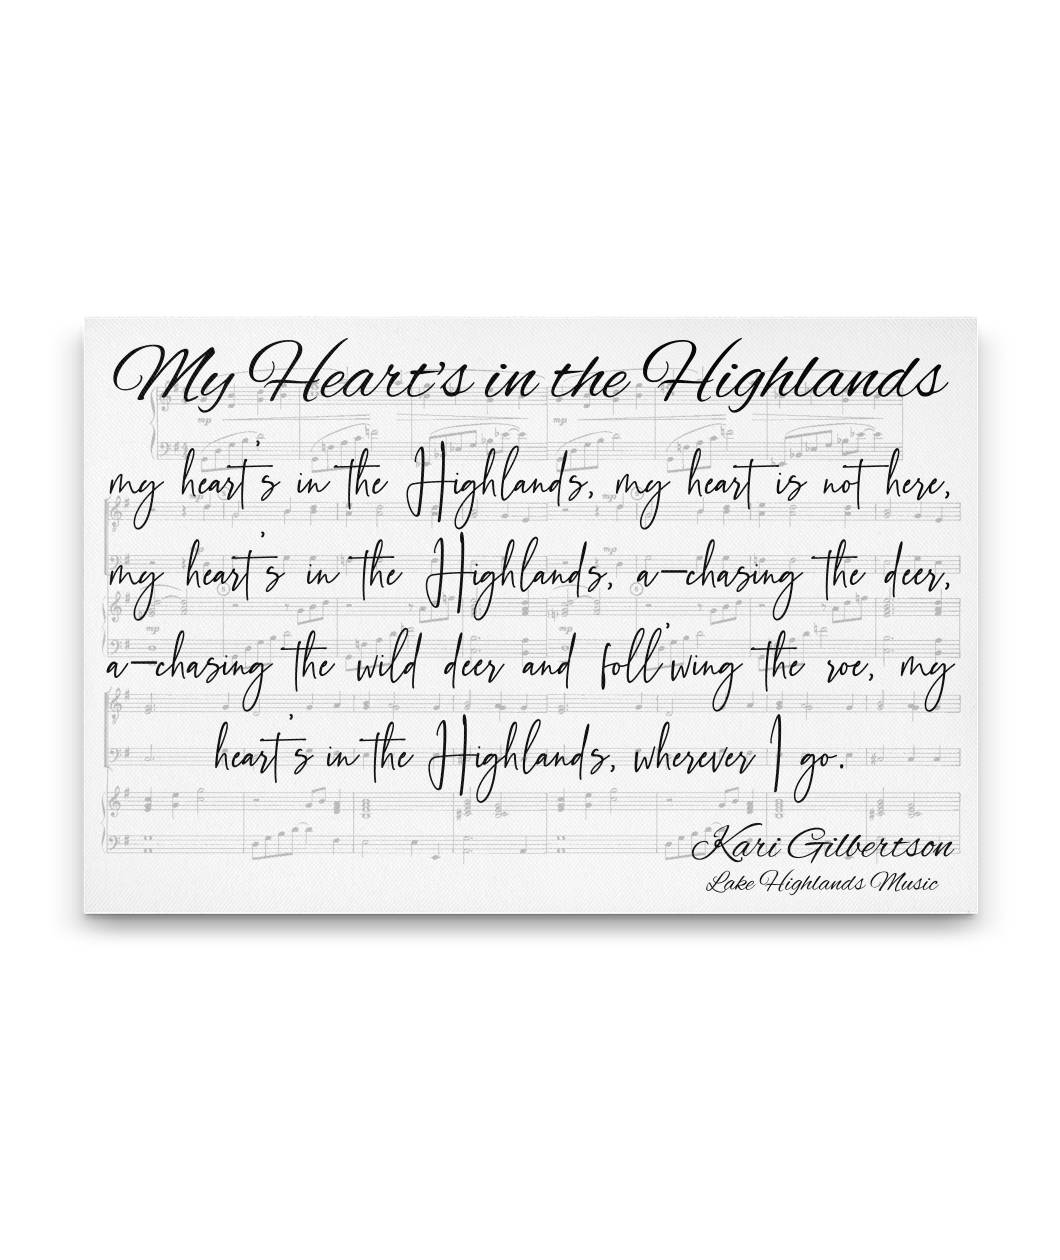 My Heart's in the Highlands
my heart's in the Highlands, my heart is not here,
my heart's in the Highlands, a-chasing the deer,
a-chasing the wild deer and foll'wing the roe, my
heart's in the Highlands, wherever I go.
Kari Gilbertson
Lake Highlands Music